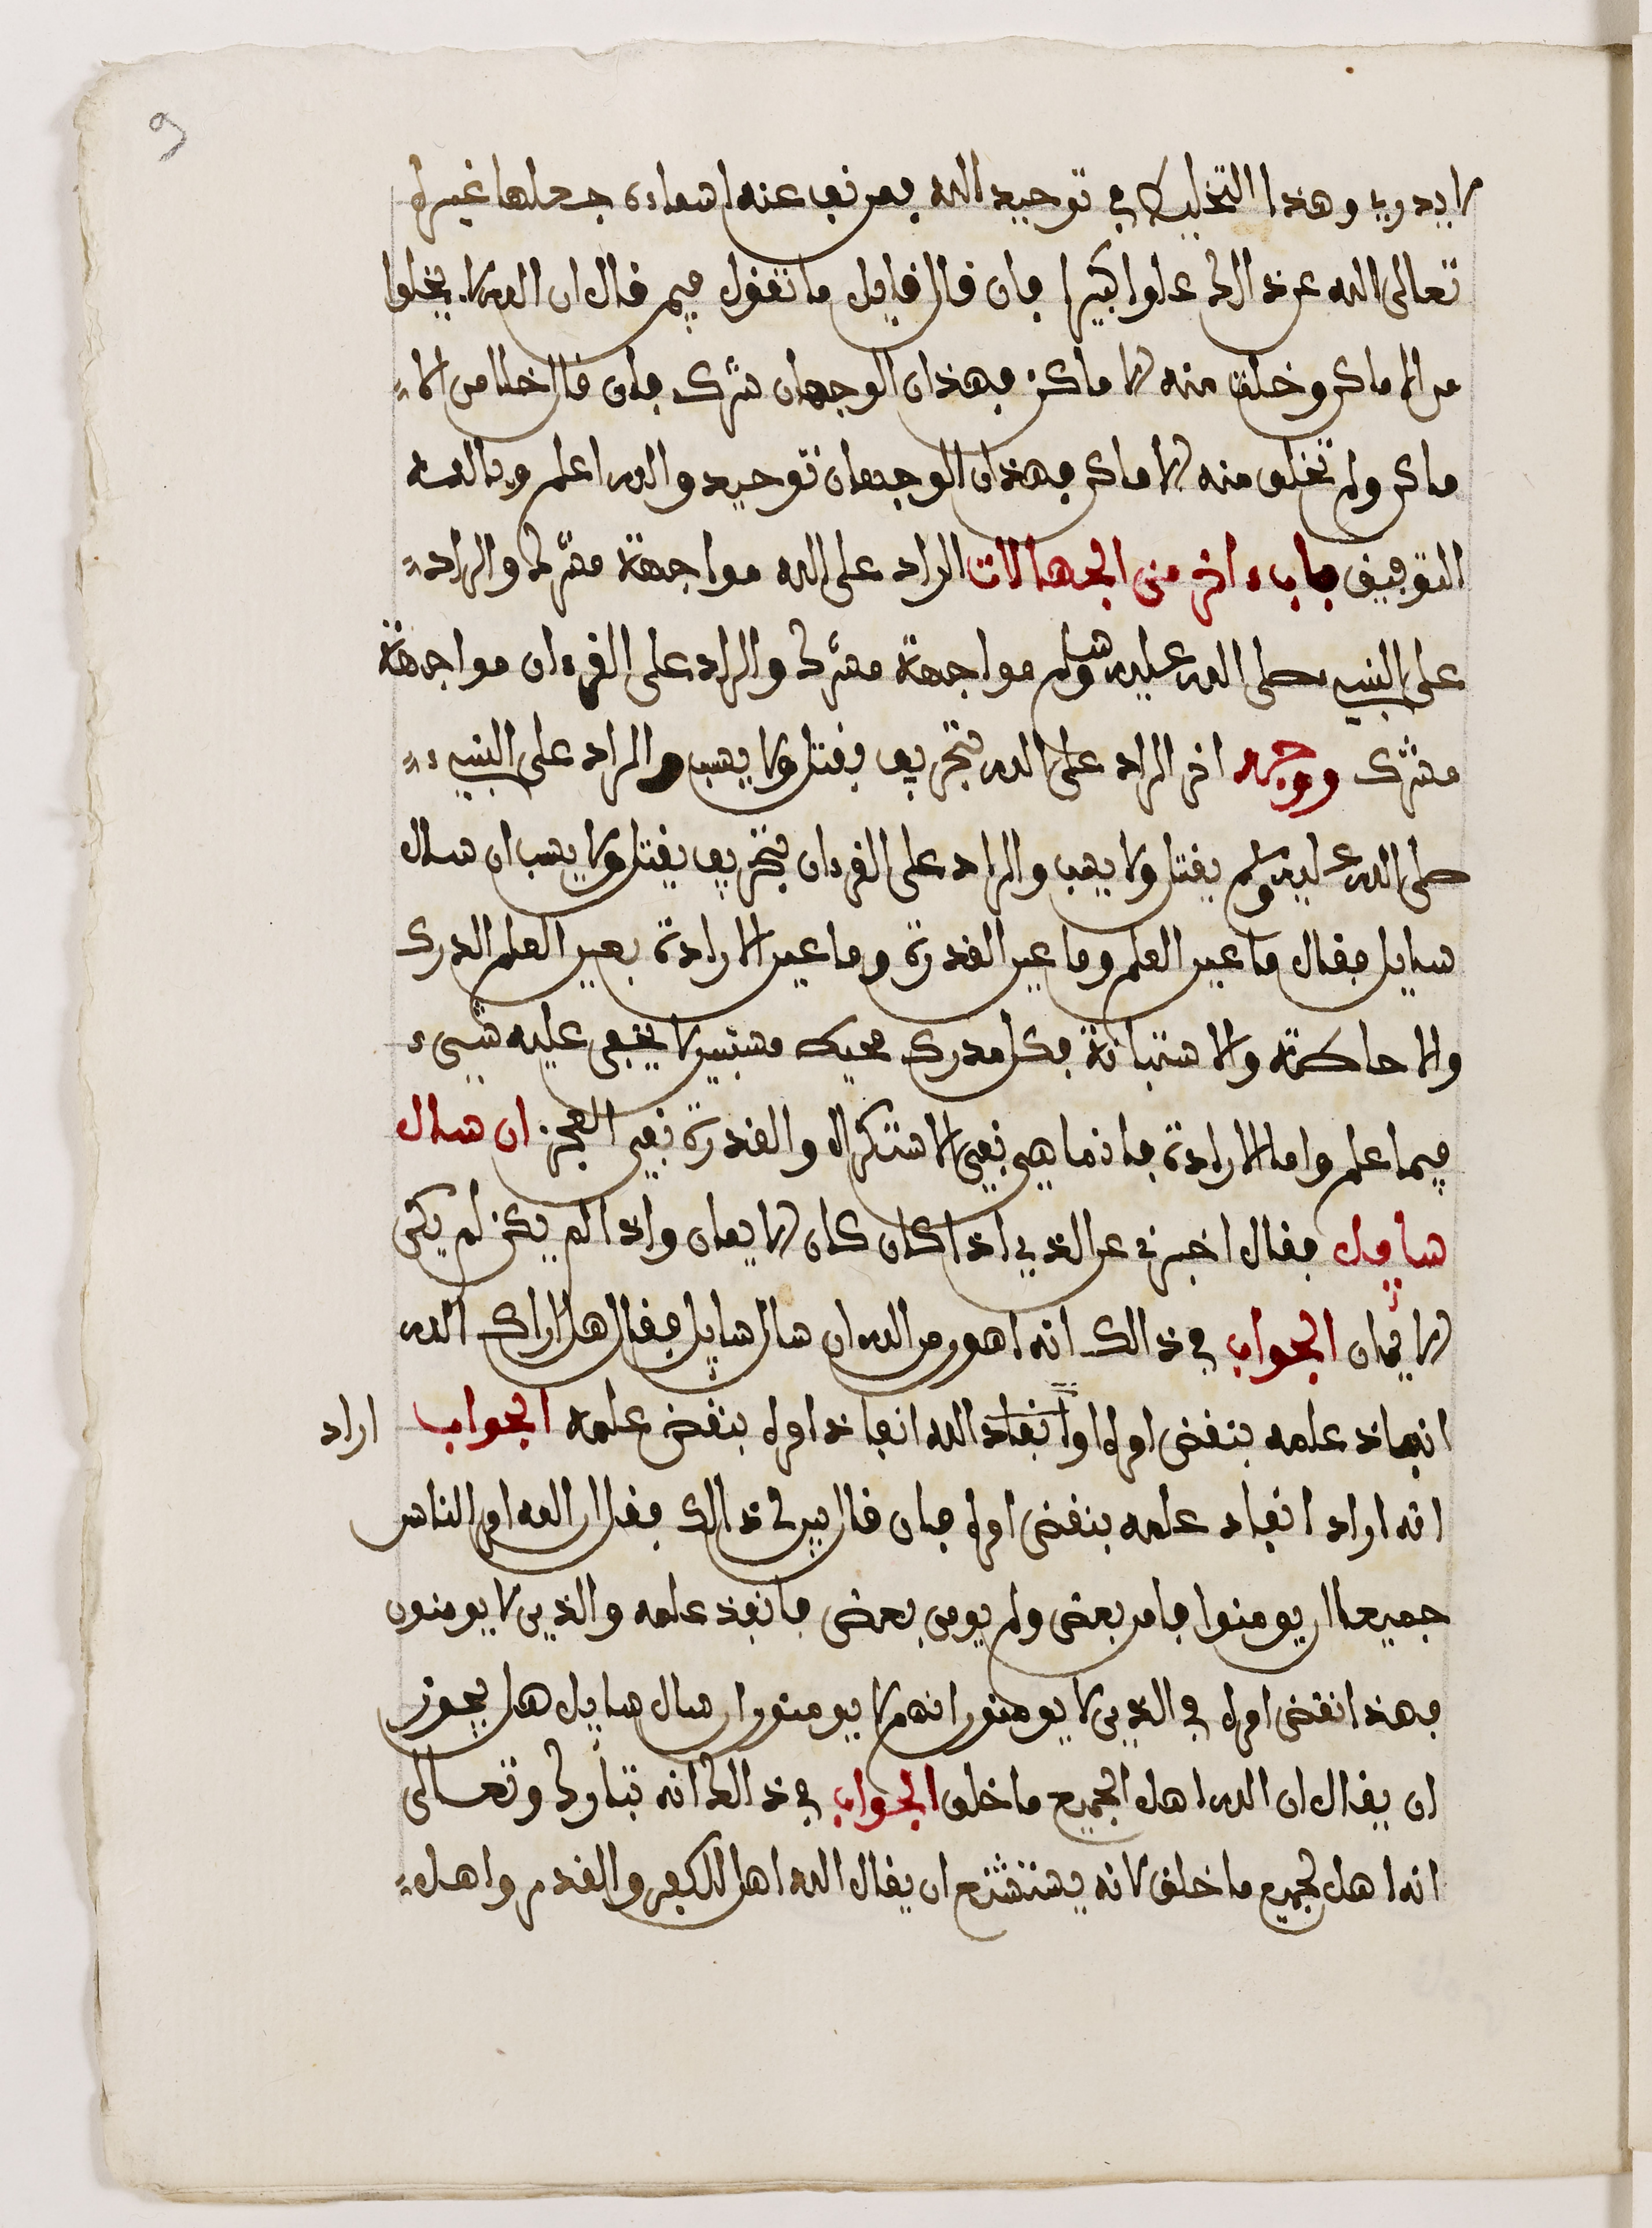 9
لا يدري وهذا التخليط في توحيد الله فمن نفى عنه اسماءه جعلها غيره
تعالى الله عن ذالك علوا كبيرا فان قال قايل ما تقول فيمن قال ان الله لا يخلوا
من الاماكن وخلق منه الاماكن فهذان الوجهان شرك فان قال خلا من الا
ماكن ولم تخلق منه الاماكن فهذان الوجهان توحيد والله اعلم وبالله
التوفيق باب ءاخر من الجهالات الراد على الله مواجهة مشرك والراد
على النبيء صلى الله عليه وسلم مواجهة مشرك والراد على القرءان مواجهة
مشرك ووجه اخر الراد على الله بتحريف يقتل ولا يسب والراد على النبيء
صلى الله عليه وسلم يقتل ولا يسب والراد على القرءان بتحريف يقتل ولا يسب ان سال
سايل فقال ما عين العلم وما عين القدرة وما عين الارادة فعين العلم الدرك
والاحاطة والاستبانة فكل مدرك محيط مستبين لا يخفى عليه شيء
فيما علم واما الارادة فانما هي نفي الاستكراه والقدرة نفي العجز ان سال
سايل فقال اخبرني عن الذي اذا كان كان الايمان واذا لم يكن لم يكن
الايمان الجواب في ذالك انه اهو من الله ان سال سايل فقال هل اراد الله
انفاذ علمه بنقض امره او انفاذ الله انفاذ امره بنقض علمه الجواب اراد
انه اراد انفاد علمه بنقض امره فان قال بين لي ذالك فقل ان الله امر الناس
جميعا ان يومنوا فامن بعض ولم يومن بعض فانفذ علمه والذين لا يومنون
فهذا نقض امره في الذين لا يومنون انهم لا يومنون ان سال سايل هل يجوز
ان يقال ان الله اهل الجميع ما خلق الجواب في ذالك انه تبارك وتعالى
انه اهل لجميع ما خلق لانه يستشنع ان يقال الله اهل للكفر والقدم واهل